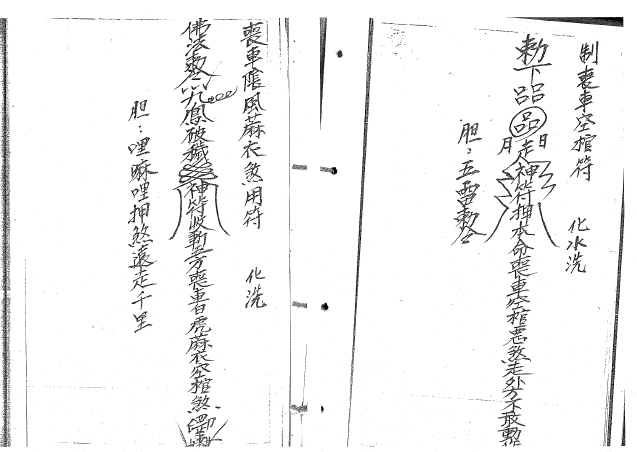 制喪車空棺符 化水洗
勅下品品品走神符押本命喪車空棺惡煞走外方不敢
日月
胆：五雷勅令
喪車陰風蔴衣煞用符 化洗
佛法勅令九鳳破穢神符收斬五方喪車白虎蔴衣空棺煞
胆：哩嘛哩押煞遠走千里